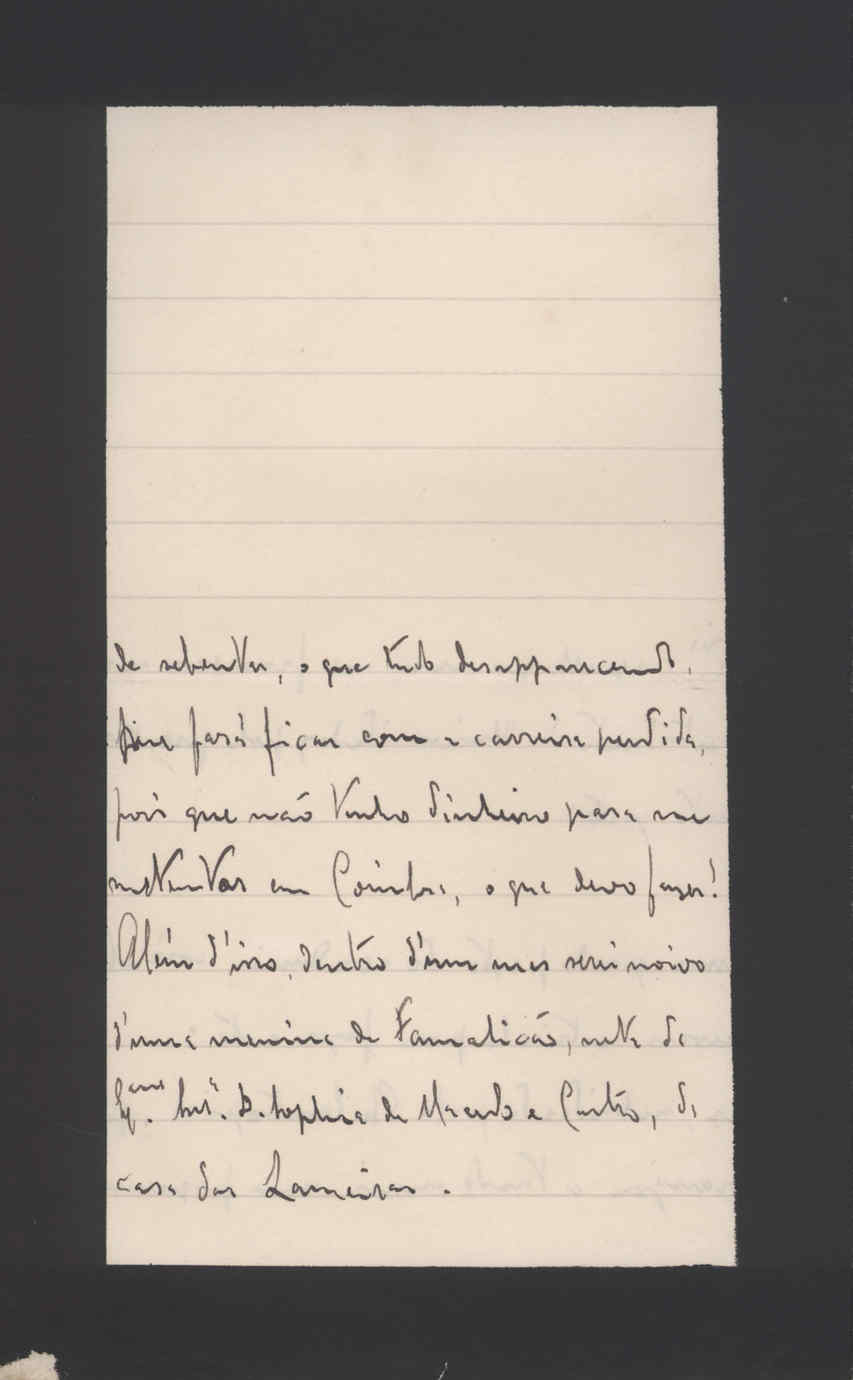 de sebentas, o que tudo desapparecendo,
fará ficar com a carreira perdida,
pois que não tenho dinheiro para me
sustentar em Coimbra, o que devo fazer!
Além d'isso, dentro d'um mes serei noivo
d'uma menina de Famalicão, neta da
Ex.ma Snr.ª D. Sophia de Macedo e Castro, da
casa das Lameiras.